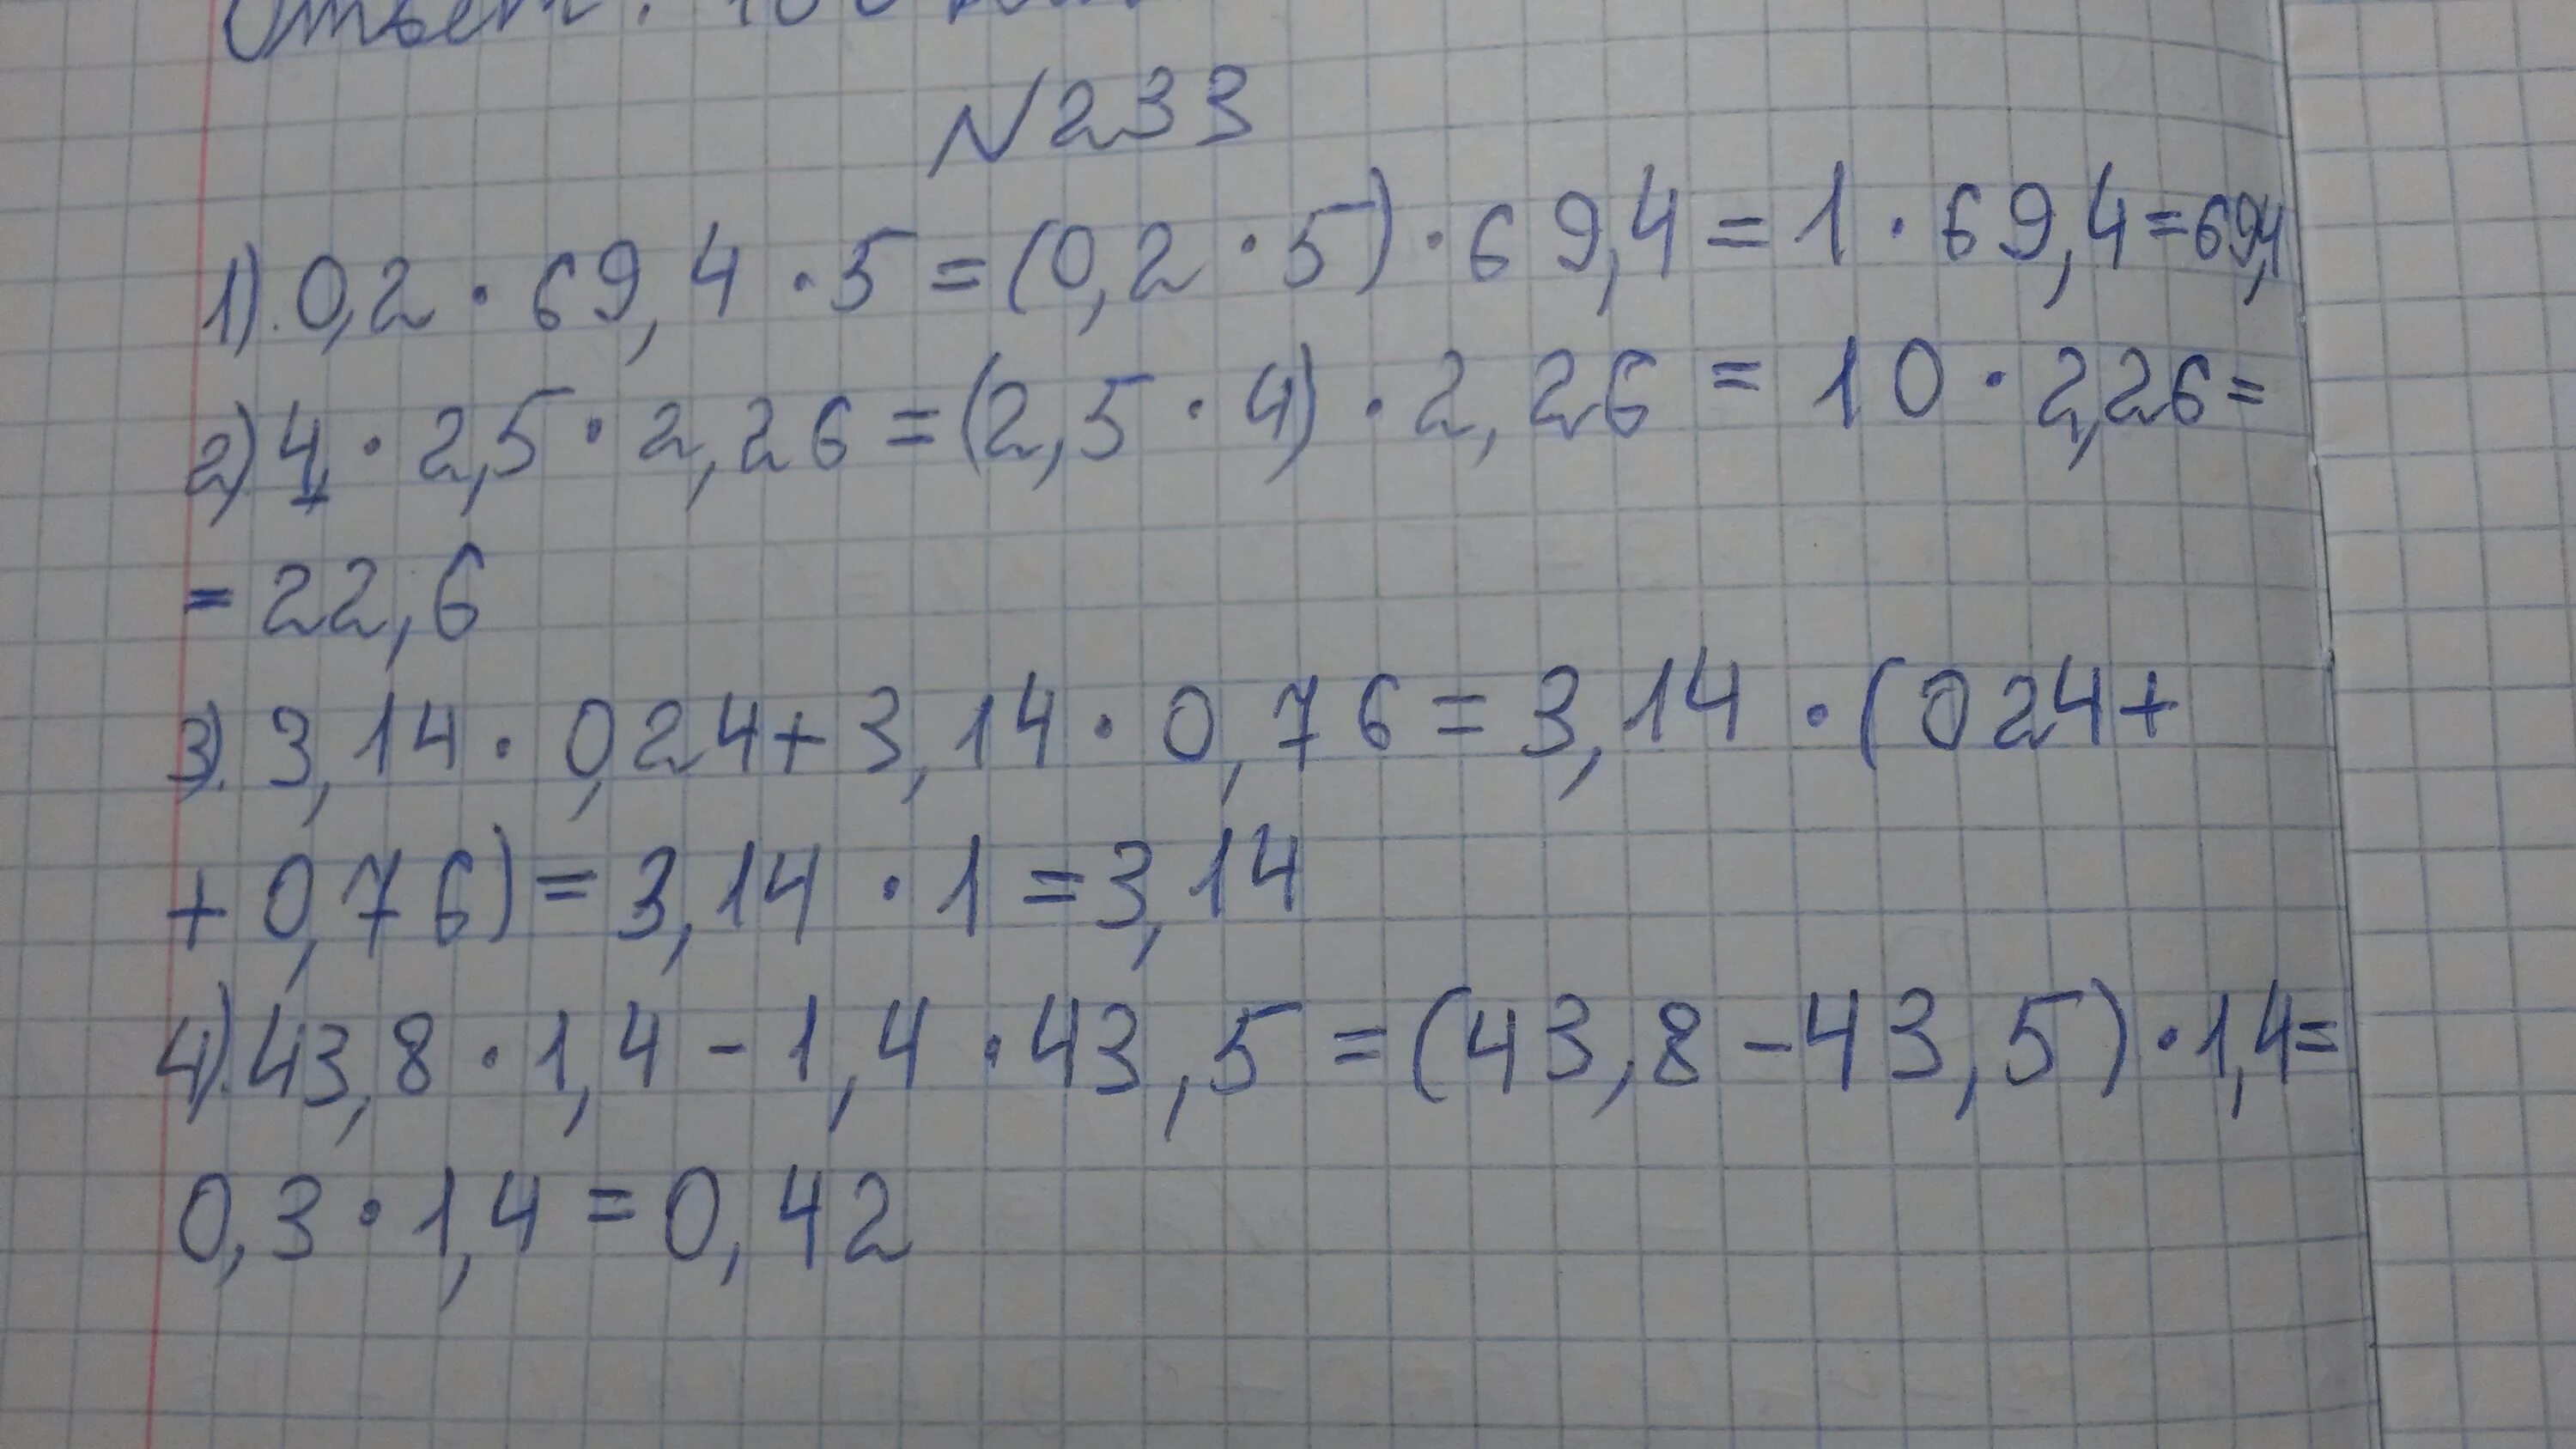 Ответ: 100
N233
1). 0,2 · 69,4 · 5 = (0,2 · 5) · 69,4 = 1 · 69,4 = 69,4
2) 4 · 2,5 · 2,26 = (2,5 · 4) · 2,26 = 10 · 2,26 =
= 22,6
3). 3,14 · 0,24 + 3,14 · 0,76 = 3,14 · (024 +
+ 0,76) = 3,14 · 1 = 3,14
4). 43,8 · 1,4 - 1,4 · 43,5 = (43,8 - 43,5) · 1,4 =
0,3 · 1,4 = 0,42